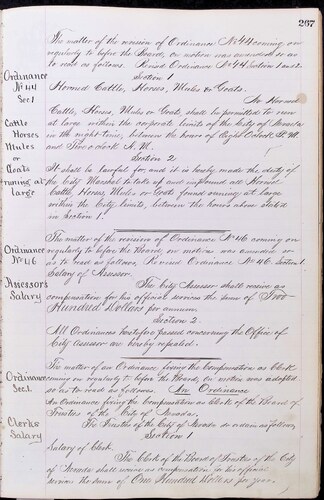 267
The matter of the revision of Ordinance No 44 coming on
regularly before the Board, on motion was amended so as
to read as follows. Revised Ordinance No 44 Section 1 and 2
Section 1
Ordinance
No 44
Sec 1
Horned Cattle, Horses, Mules or Goats.
No Horned
Cattle, Horses, Mules or Goats, shall be permitted to run
at large within the corporate limits of the City of Nevada
in the night time, between the hours of Eight O'clock P.M.
and Five o'clock A.M.
Cattle
Horses
Mules
or
Goats
running at
large
Section 2
It shall be lawful for, and it is hereby made the duty of
the City Marshal to take up and impound all Horned
Cattle, Horses, Mules or Goats found running at large
within the City limits, between the hours above
in Section 1.
Ordinance
No 46
The matter of the revision of Ordinance No 46 coming on
regularly before the Board, on motion was amended so
as to read as follows. Revised Ordinance No 46. Section 1
Salary of Assessor.
Assessor's
Salary
The City Assessor shall receive as
compensation for his official services the sum of Two
Hundred Dollars per annum.
Section 2.
All Ordinances heretofore passed concerning the Office of
City Assessor are hereby repealed.
Ordinance
Sec 1.
The matter of an Ordinance fixing the Compensation as Clerk
coming on regularly before the Board, on motion was adopted
so as to read as follows. An Ordinance
An Ordinance fixing the Compensation as Clerk of the Board of
Trustees of the City of Nevada.
The Trustees of the City of Nevada do ordain as follows,
Clerk's
Salary
Section 1
Salary of Clerk.
The Clerk of the Board of Trustees of the City
of Nevada shall receive as compensation for his official
services the sum of One Hundred Dollars per year.